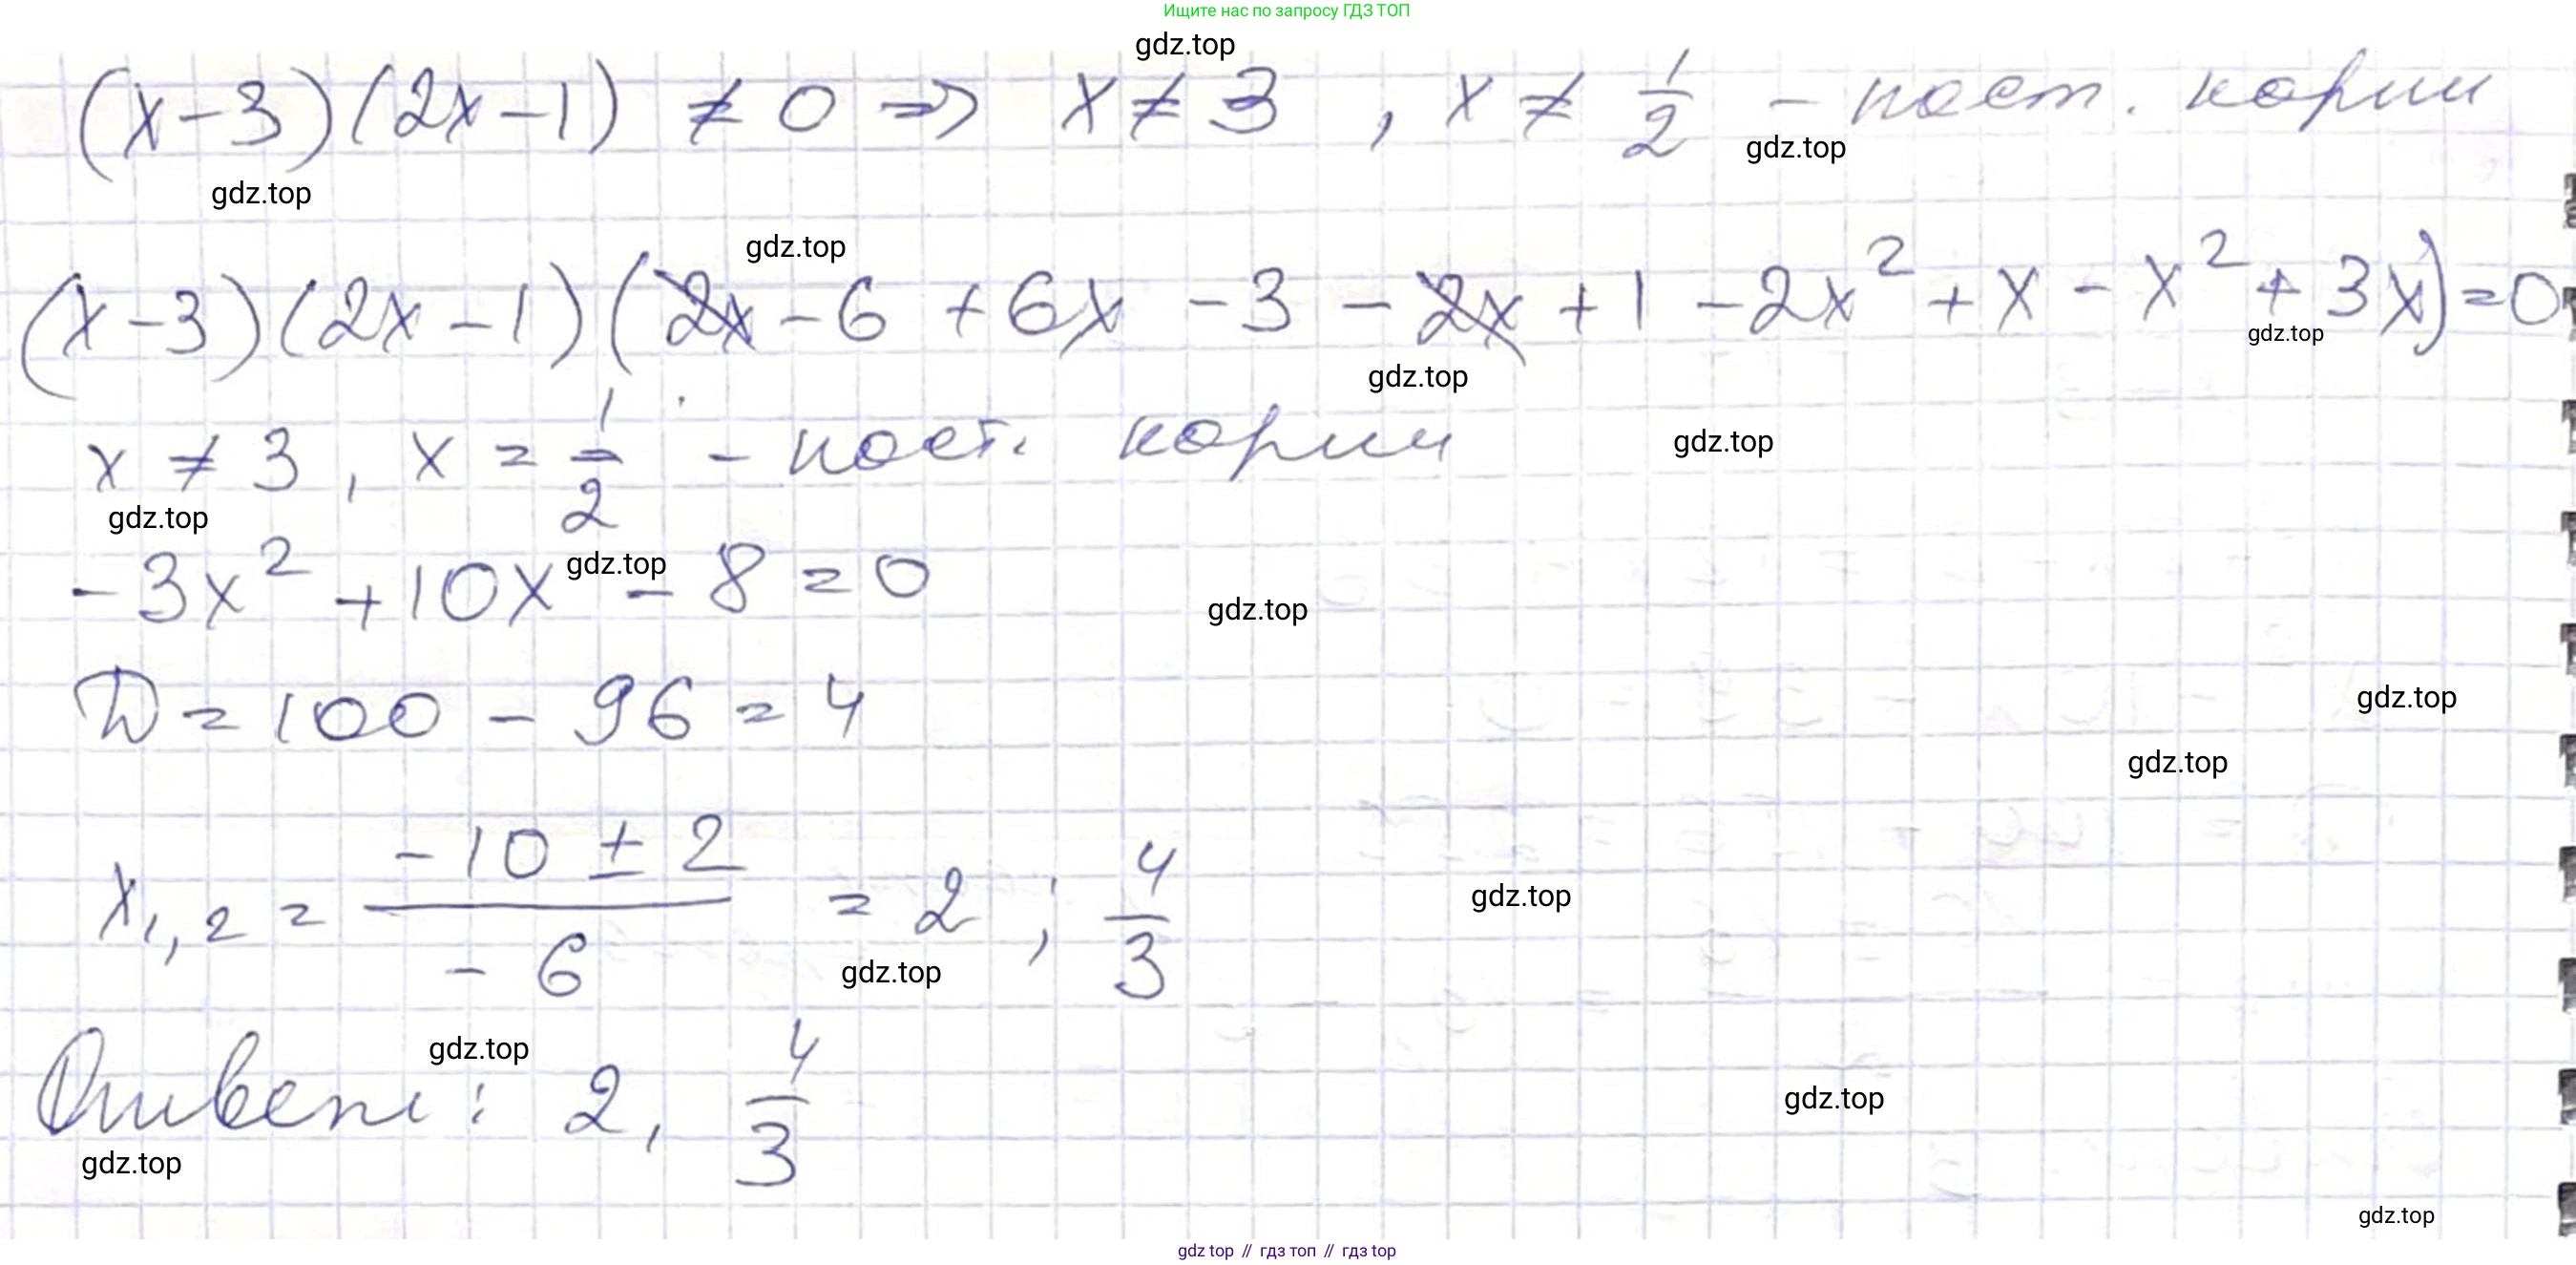 Ищите нас по запросу ГДЗ ТОП
gdz.top
(x-3)(2x-1) ≠ 0 => x ≠ 3 , x ≠ 1/2 - пост. корни
gdz.top
gdz.top
gdz.top
(x-3)(2x-1)(2x-6+6x-3-2x+1-2x²+x-x²+3x)=0
gdz.top
gdz.top
x ≠ 3, x = 1/2 - пост. корни
gdz.top
gdz.top
-3x²+10x-8=0
gdz.top
gdz.top
D=100-96=4
gdz.top
gdz.top
x1,2 = (-10±2)/(-6) = 2 ; 4/3
gdz.top
gdz.top
Ответ: 2, 4/3
gdz.top
gdz.top
gdz.top
gdz.top
gdz top // гдз топ // гдз top